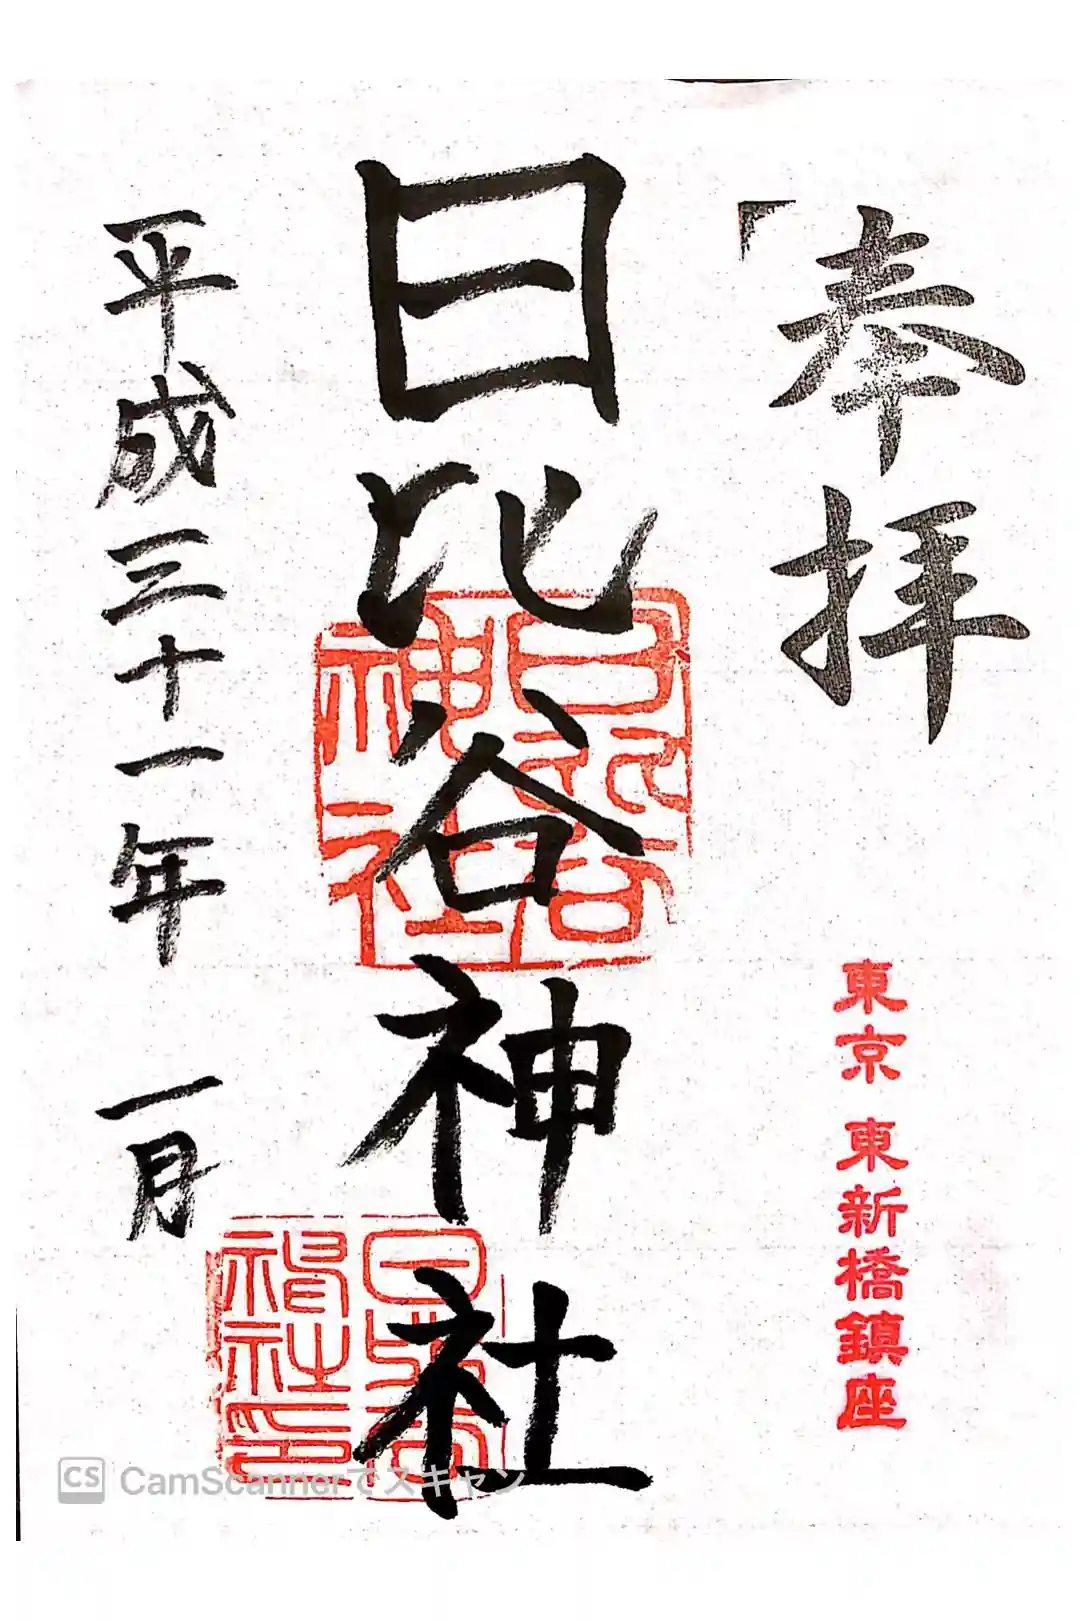 奉拝
東京 東新橋鎮座
日比谷神社
日比谷神社
日比谷神社印
平成三十一年 一月
CS CamScannerでスキャン